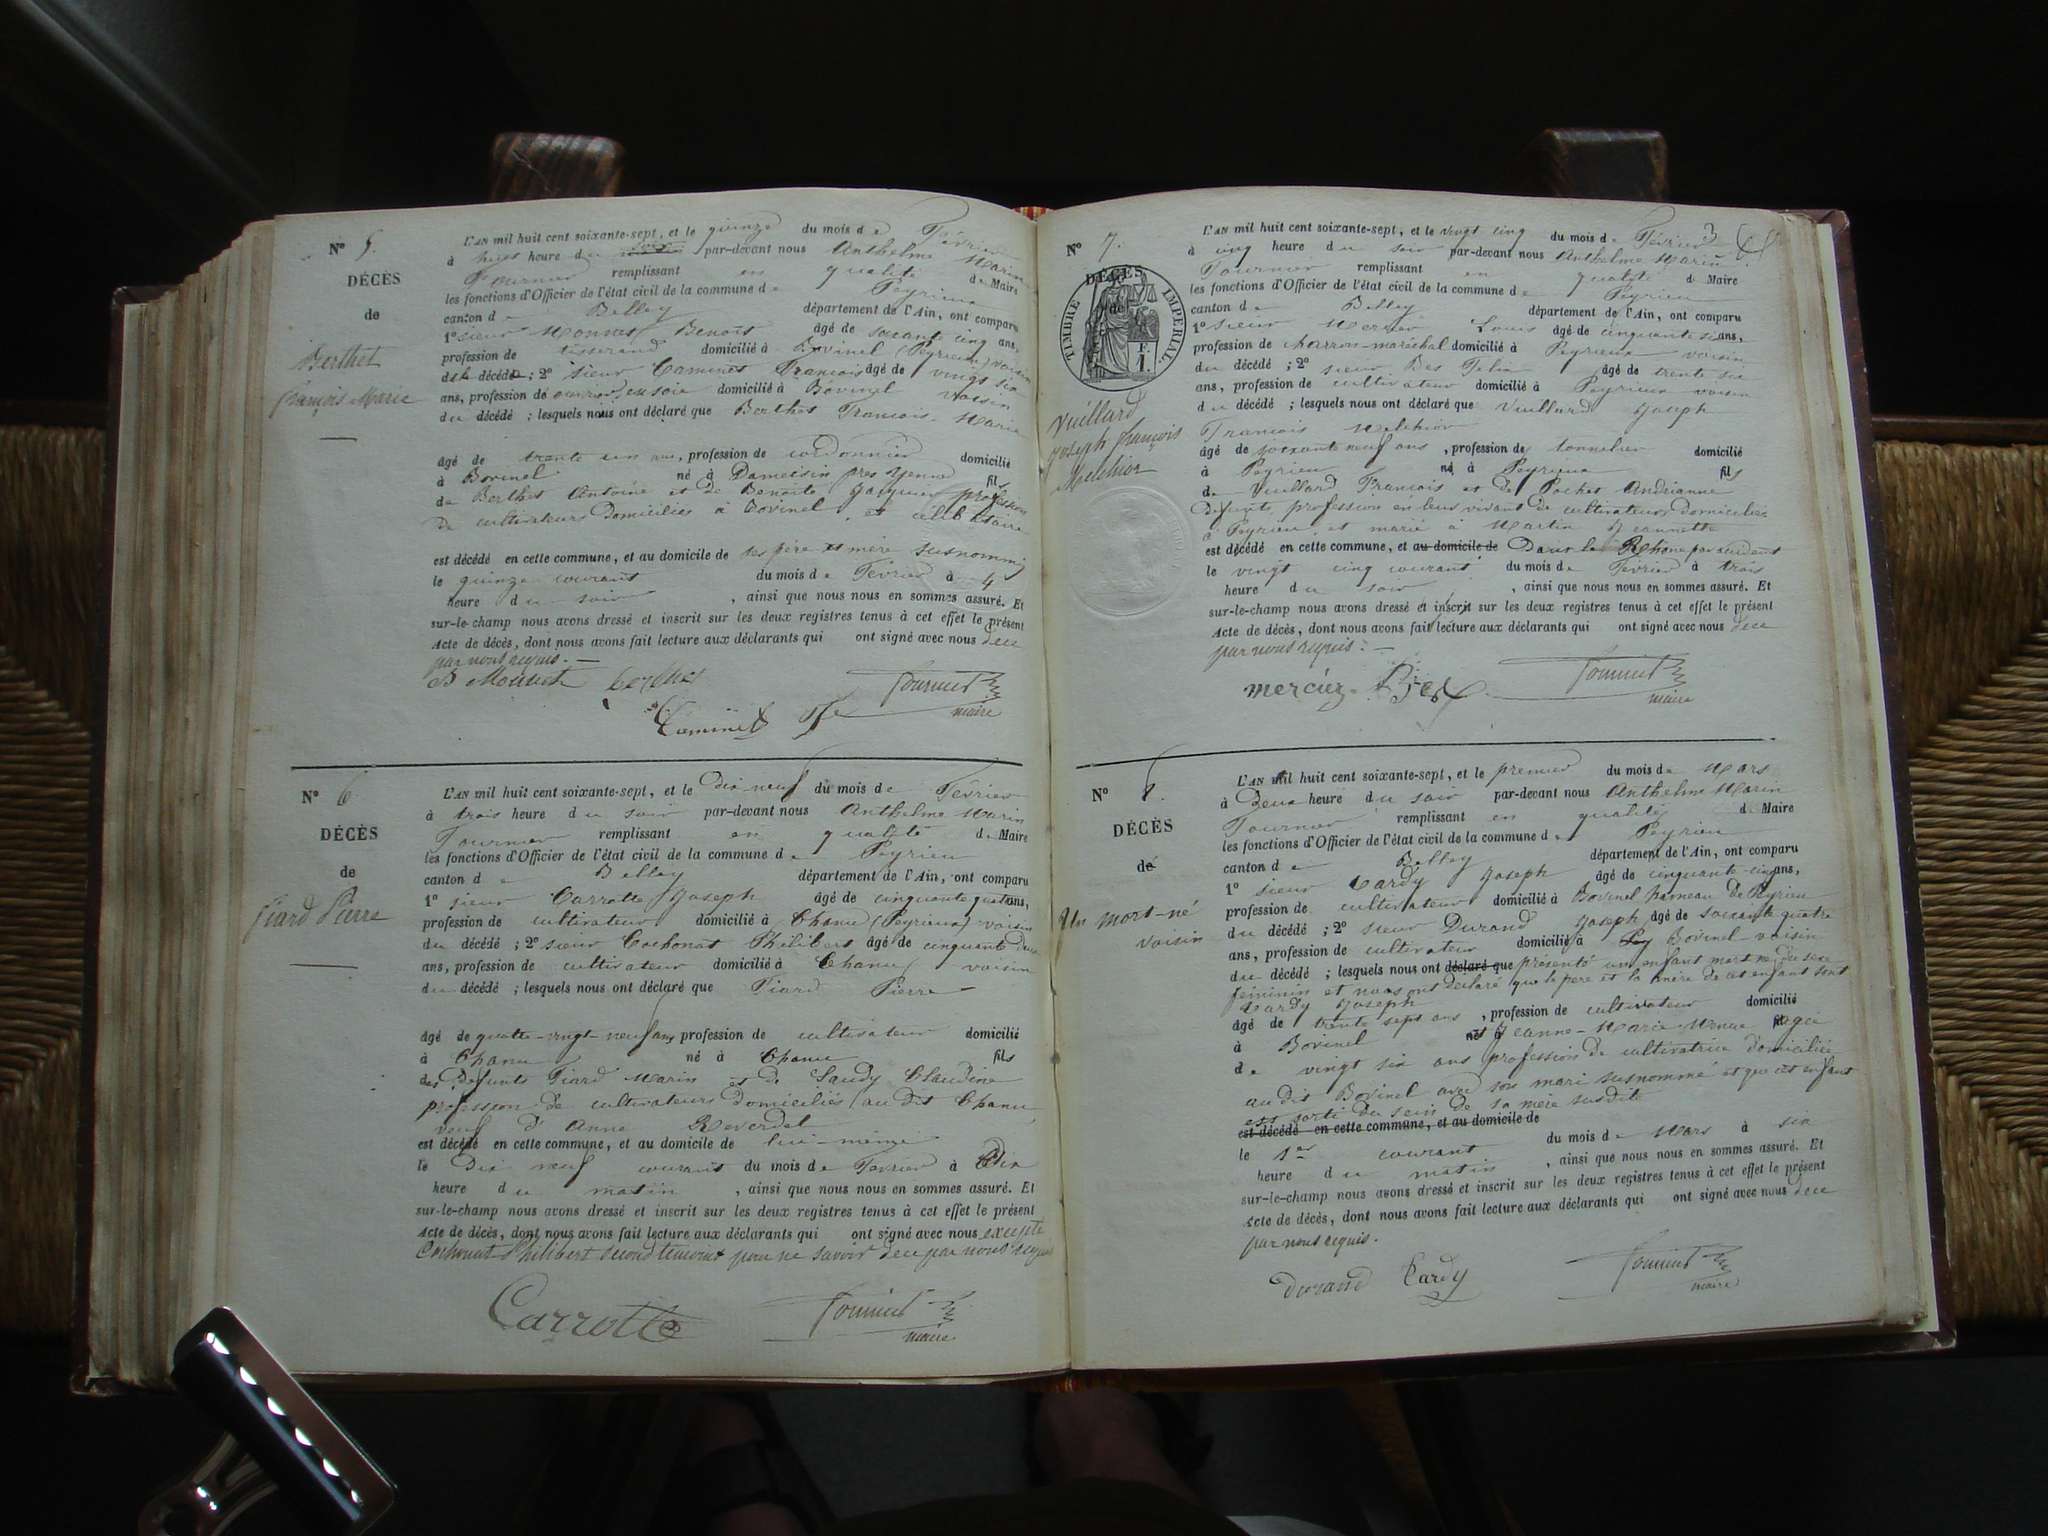 N° 5.
DÉCÈS
de
Berthet
François Marie
L'AN mil huit cent soixante-sept, et le quinze du mois de Février
à huit heure du soir par-devant nous Anthelme Marin
Fournier remplissant en qualité de Maire
les fonctions d'Officier de l'état civil de la commune de Peyrieu
canton de Belley département de l'Ain, ont comparu
1° sieur Benoit âgé de soixante cinq ans,
profession de tisserand domicilié à Bovinel (Peyrieu) voisin
du décédé ; 2° sieur Caminet François âgé de vingt six
ans, profession de ouvrier en soie domicilié à Bovinel voisin
du décédé ; lesquels nous ont déclaré que Berthet François-Marie
âgé de trente un ans, profession de cordonnier domicilié
à Bovinel né à près Yenne fils
de Berthet Antoine et de Benoite Jacquier profession
de cultivateurs domiciliés à Bovinel, et célibataire
est décédé en cette commune, et au domicile de ses père et mère susnommés
le quinze courant du mois de Février à 4
heure du soir, ainsi que nous nous en sommes assuré. Et
sur-le-champ nous avons dressé et inscrit sur les deux registres tenus à cet effet le présent
Acte de décès, dont nous avons fait lecture aux déclarants qui ont signé avec nous de ce
par nous requis.
Caminet Fournier
maire
N° 6.
DÉCÈS
de
Fiard Pierre
L'AN mil huit cent soixante-sept, et le dix neuf du mois de Février
à trois heure du soir par-devant nous Anthelme Marin
Fournier remplissant en qualité de Maire
les fonctions d'Officier de l'état civil de la commune de Peyrieu
canton de Belley département de l'Ain, ont comparu
1° sieur Carrotte Joseph âgé de cinquante quatre ans,
profession de cultivateur domicilié à Chanu (Peyrieux) voisin
du décédé ; 2° sieur Cochonat Philibert âgé de cinquante deux
ans, profession de cultivateur domicilié à Chanu voisin
du décédé ; lesquels nous ont déclaré que Fiard Pierre
âgé de quatre-vingt-neuf ans profession de cultivateur domicilié
à Chanu né à Chanu fils
des défunts Fiard Marin et de Claudine
profession de cultivateurs domiciliés au dit Chanu
veuf d'Anne Reverdel
est décédé en cette commune, et au domicile de lui-même
le dix neuf courant du mois de Février à dix
heure du matin, ainsi que nous nous en sommes assuré. Et
sur-le-champ nous avons dressé et inscrit sur les deux registres tenus à cet effet le présent
Acte de décès, dont nous avons fait lecture aux déclarants qui ont signé avec nous excepté
Cochonat Philibert second témoin pour ne savoir de ce par nous requis
Carrotte Fournier
maire
3
N° 7.
DÉCÈS
de
TIMBRE IMPERIAL
1 F.
Vuillard
Joseph François
Melchior
L'AN mil huit cent soixante-sept, et le vingt cinq du mois de Février
à cinq heure du soir par-devant nous Anthelme Marin
Fournier remplissant en qualité de Maire
les fonctions d'Officier de l'état civil de la commune de Peyrieu
canton de Belley département de l'Ain, ont comparu
1° sieur Mercier Louis âgé de cinquante ans,
profession de charron-maréchal domicilié à Peyrieux voisin
du décédé ; 2° sieur Félix âgé de trente six
ans, profession de cultivateur domicilié à Peyrieux voisin
du décédé ; lesquels nous ont déclaré que Vuillard Joseph
François Melchior
âgé de soixante neuf ans, profession de tonnelier domicilié
à Peyrieu né à Peyrieux fils
de Vuillard François et de Pochet Andrianne
défunts, profession en leur vivant de cultivateurs domiciliés
à Peyrieu et marié à Martin Jeannette
est décédé en cette commune, et au domicile de Dans le Rhône par accident
le vingt cinq courant du mois de Février à trois
heure du soir, ainsi que nous nous en sommes assuré. Et
sur-le-champ nous avons dressé et inscrit sur les deux registres tenus à cet effet le présent
Acte de décès, dont nous avons fait lecture aux déclarants qui ont signé avec nous de ce
par nous requis.
mercier Fournier
maire
N° 8.
DÉCÈS
de
Un mort-né
voisin
L'AN mil huit cent soixante-sept, et le premier du mois de Mars
à deux heure du soir par-devant nous Anthelme Marin
Fournier remplissant en qualité de Maire
les fonctions d'Officier de l'état civil de la commune de Peyrieu
canton de Belley département de l'Ain, ont comparu
1° sieur Cardy Joseph âgé de cinquante-cinq ans,
profession de cultivateur domicilié à Bovinel hameau de Peyrieu
du décédé ; 2° sieur Durand Joseph âgé de soixante quatre
ans, profession de cultivateur domicilié à Pey Bovinel-voisin
du décédé ; lesquels nous ont déclaré que présenté un enfant mort né du sexe
féminin et nous ont déclaré que le père et la mère de cet enfant sont
Cardy Joseph
âgé de trente sept ans, profession de cultivateur domicilié
à Bovinel né à et Jeanne-Marie fil agée
de vingt six ans profession de cultivatrice domiciliée
au dit Bovinel avec son mari susnommé et que cet enfant
est sorti du sein de sa mère susdite
est décédé en cette commune, et au domicile de
le 1er courant du mois de Mars à six
heure du matin, ainsi que nous nous en sommes assuré. Et
sur-le-champ nous avons dressé et inscrit sur les deux registres tenus à cet effet le présent
Acte de décès, dont nous avons fait lecture aux déclarants qui ont signé avec nous de ce
par nous requis.
Durand Cardy Fournier
maire